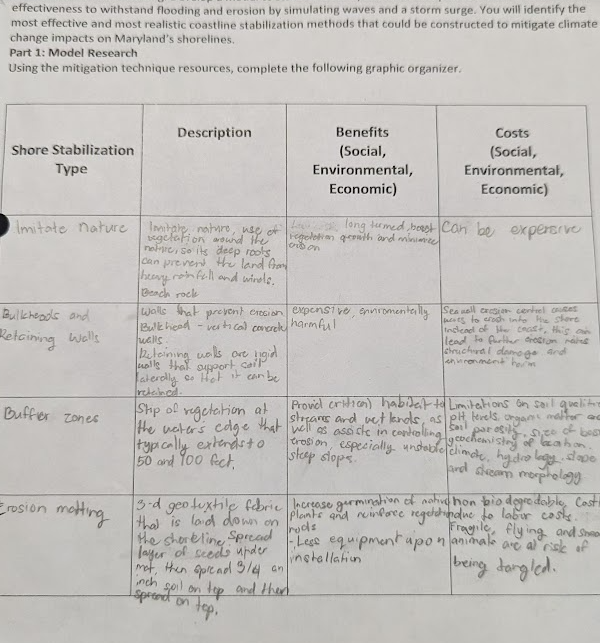 effectiveness to withstand flooding and erosion by simulating waves and a storm surge. You will identify the
most effective and most realistic coastline stabilization methods that could be constructed to mitigate climate
change impacts on Maryland's shorelines.
Part 1: Model Research
Using the mitigation technique resources, complete the following graphic organizer.
Shore Stabilization
Type
Description
Benefits
(Social,
Environmental,
Economic)
Costs
(Social,
Environmental,
Economic)
Imitate nature
Imitate nature, use of
vegetation around the
native, so its deep roots
can prevent the land from
heavy rainfall and winds.
Beach rock
long termed, boost
vegetation growth and minimize
erosion
Can be expensive
Bulkheads and
Retaining Walls
Walls that prevent erosion
Bulkhead - vertical concrete
walls.
Retaining walls are rigid
walls that support soil
laterally so that it can be
retained.
expensive, enviromentally
harmful
Sea wall erosion control causes
waves to crash into the shore
instead of the coast, this can
lead to further erosion
structural damage and
environment harm
Buffer zones
Strip of vegetation at
the waters edge that
typically extends to
50 and 100 feet.
Provid critical habitat to
streams and wetlands, as
well as assists in controlling
erosion, especially unstable
steep slops.
Limitations on soil quality
pH levels, organic matter
soil porosity, size of
geochemistry of location,
climate, hydrology, slope
and stream morphology
Erosion matting
3-d geotextile fabric
that is laid down on
the shoreline. Spread
layer of seeds under
mat, then spread 3/4 an
inch soil on top and then
spread on top.
Increase germination of native
plants and reinforce vegetation
- Less equipment upon
installation
non biodegradable, Cost
due to labor costs.
Fragile, flying and
animals are at risk of
being tangled.